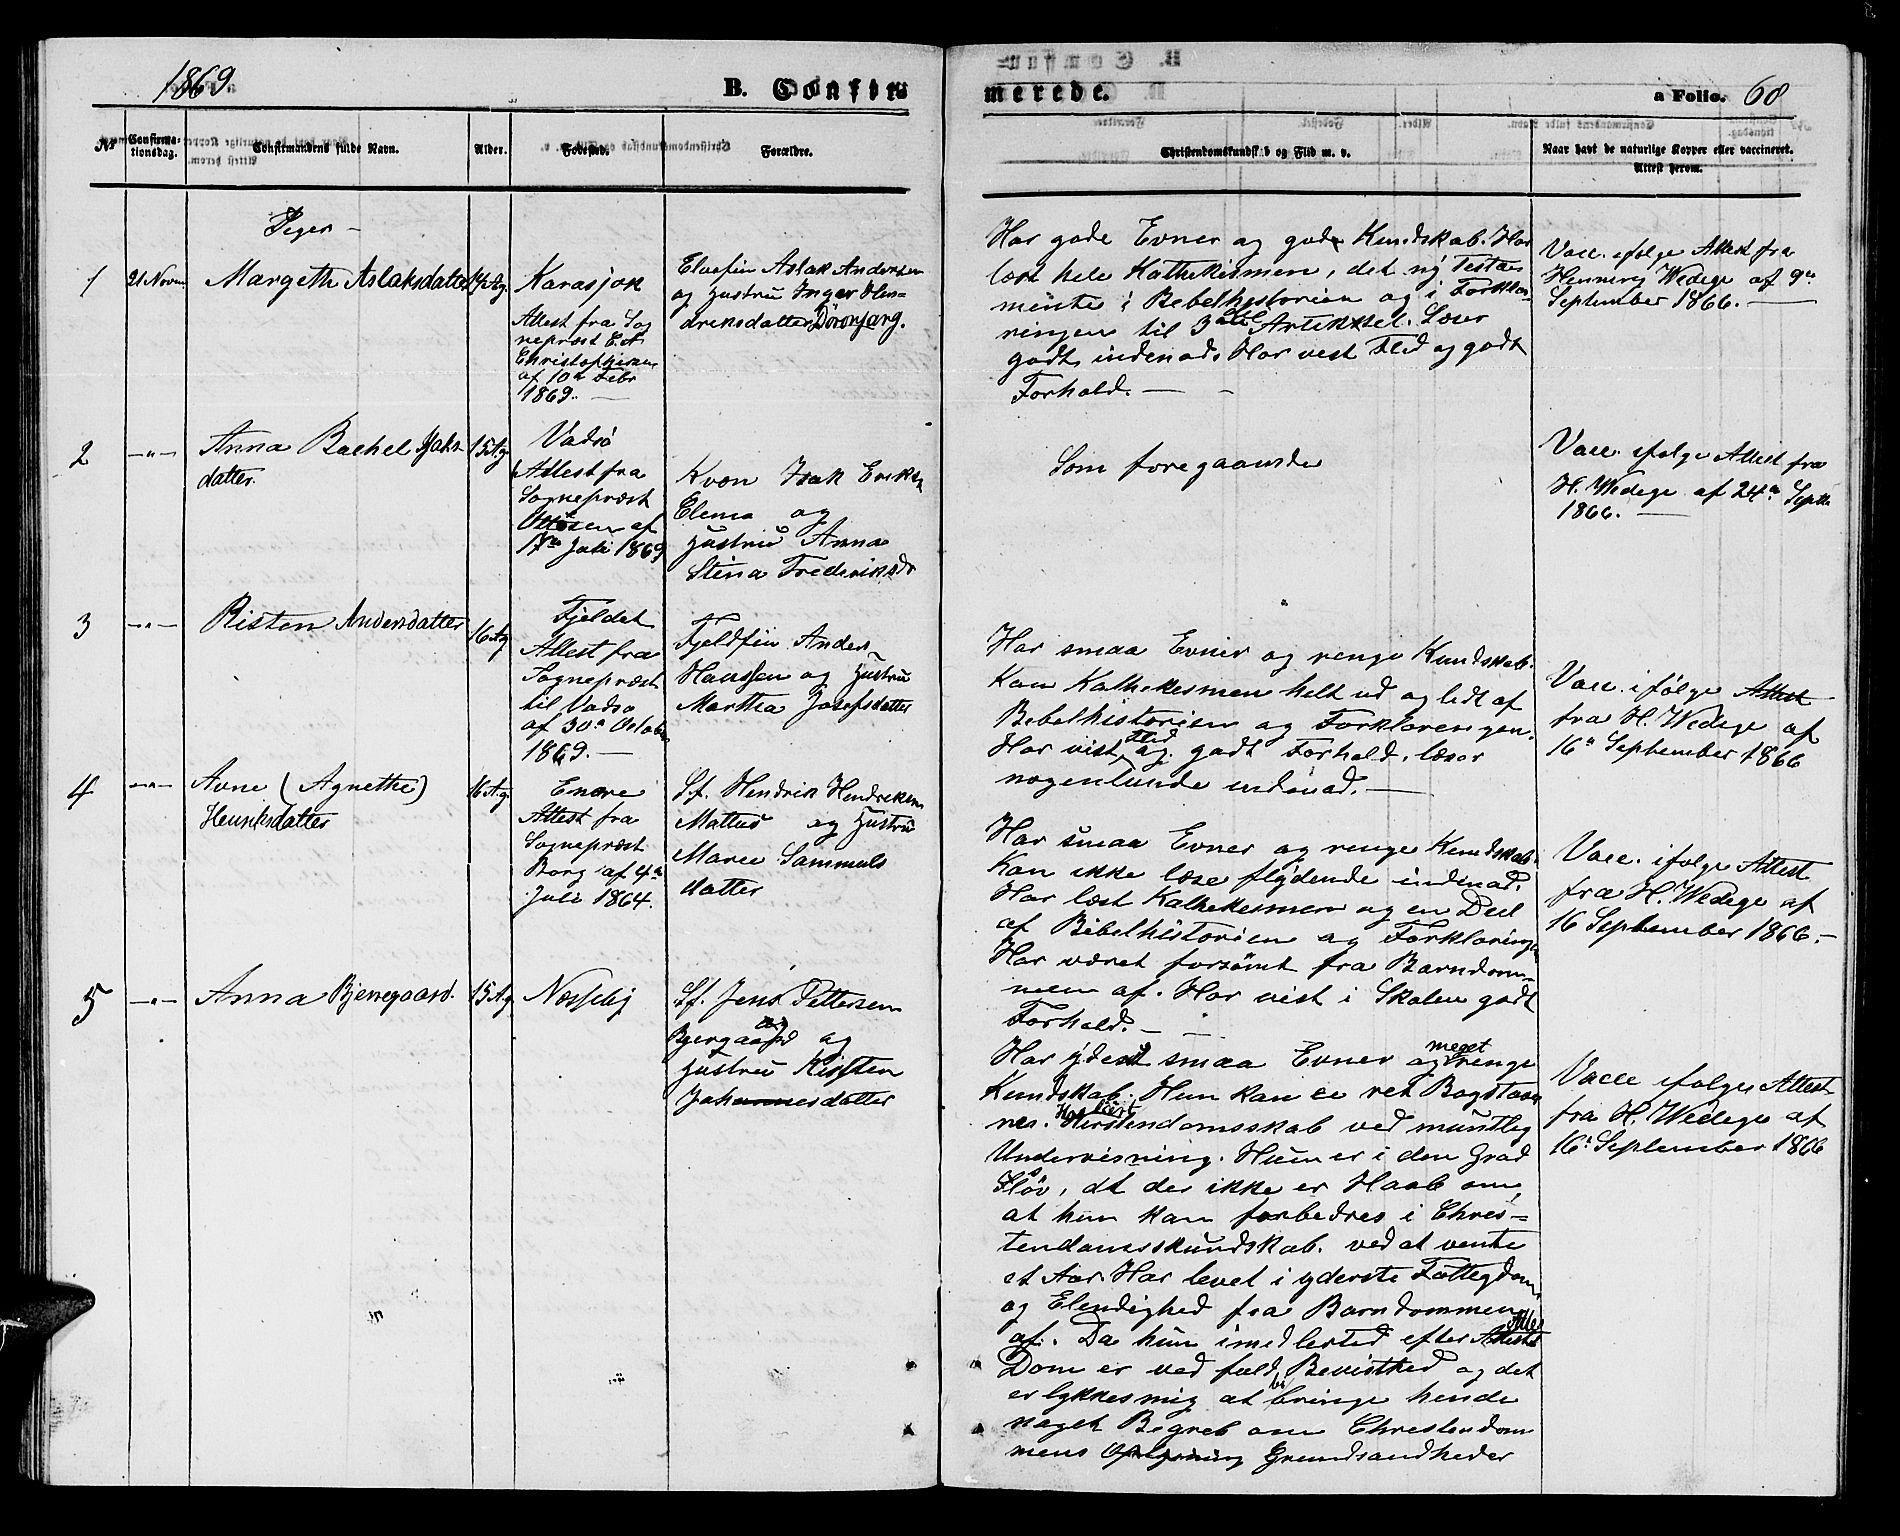 1869.
B. Confir-
merede.
a Folio. 68
No
Confirma-
tionsdag.
Confirmandens fulde Navn.
Alder.
Fødested.
Forældre.
Christendomskundskab og Flid m. v.
Naar havt de naturlige Kopper eller vaccineret.
Attest herom.
Piger -
1
21 Novem
Margeth Aslaksdatter
Karasjok
Attest fra Sog
nepræst
Christophersen
af 10de Febr
1869. -
Elvefin Aslak Andersen
og Hustru Inger Hen-
driksdatter
Har gode Evner og gode Kundskab. Har
læst hele Kathekismen, det ny Testa-
mente i Bebelhistorien og i Forklar-
ringen til 3die Artikkel. Læser
godt indenad. Har vist Flid og godt
Forhold. -
Vacc. ifølge Attest fra
Henning Wedege af 9de
September 1866. -
2
-"-
Anna Rachel Isaks
datter.
15 Ag
Vadsö
Attest fra
Sognepræst
af
17de Juli 1869
Kvæn Isak Eriksen
Elema og
Hustru Anna
Stina Frederiksdr
Som foregaaende
Vacc. ifølge Attest fra
H. Wedege af 24de Septbr
1866. -
3
-"-
Risten Andersdatter
16 Ag
Fjeldet
Attest fra
Sognepræst
til Vadsö
af 30te October
1869. -
Fjeldfin Anders
Hanssen og Hustru
Martha Josefsdatter
Har smaa Evner og ringe Kundskab.
Kan Kathekesmen helt ud og lidt af
Bebelhistorien og Forklaringen.
Har vist Flid og godt Forhold. læser
nogenlunde indenad. -
Vacc. ifölge Attest
fra H. Wedege af
16de September 1866
4
-"-
Avne (Agnethe)
Henriksdatter
16 Ag.
Enare
Attest fra
Sognepræst
Borg af 4de
Juli 1864.
Sf. Hendrik Hendriksen
Mattus og Hustru
Maree Sammuls
datter
Har smaa Evner og ringe Kundskab.
Kan ikke læse flydende indenad.
Har læst Kathekesmen og en Deel
af Bibelhistorien og Forklaringen
Har været forsömt fra Barndom-
men af. Har vist i Skolen godt
Forhold. -
Vacc. ifølge Attest
fra H. Wedege af
16 September 1866. -
5
-"-
Anna Bjenegaard.
15 Ag
Næsseby
Sf. Jens Pettersen
Bjergaard og
Hustru Kirsten
Johannesdatter
Har yderst smaa Evner og meget ringe
Kundskab. Hun kan ei ret Bogstaver
nes. Har lært Kristendomsskab ved mundtlig
Undervisning. Hun er i den Grad
Slöv, at der ikke er Haab om,
at hun kan forbedres i Chris-
tendomsskundskab. ved at vente
et Aar. Har levet i yderste Fattigdom
og Elendighed fra Barndommen
af. Da hun imidlertid efter Alles
Dom er ved fuld Bevisthed og det
er lykkes mig at bibringe hende
noget Begreb om Christendom
mens Grundsandheder
Vacc ifølge Attest
fra H. Wedege af
16de September 1866